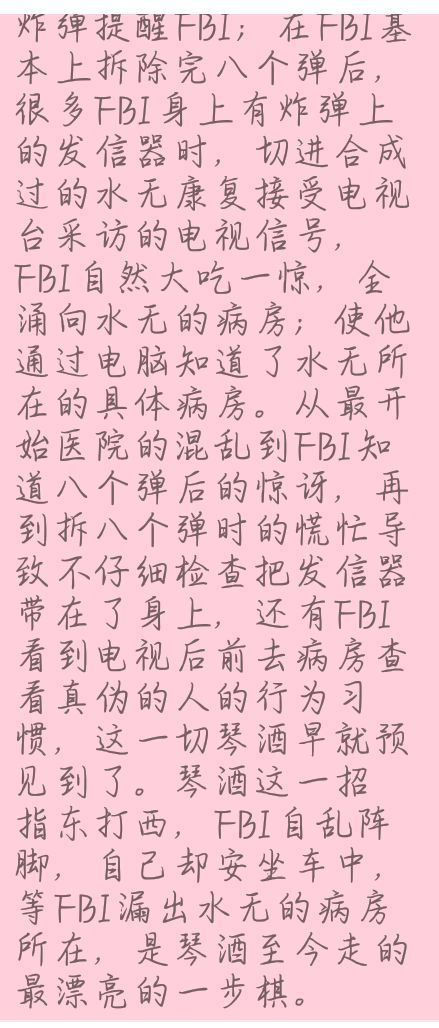 炸弹提醒FBI；在FBI基
本上拆除完八个弹后，
很多FBI身上有炸弹上
的发信器时，切进合成
过的水无康复接受电视
台采访的电视信号，
FBI自然大吃一惊，全
涌向水无的病房；使他
通过电脑知道了水无所
在的具体病房。从最开
始医院的混乱到FBI知
道八个弹后的惊讶，再
到拆八个弹时的慌忙导
致不仔细检查把发信器
带在了身上，还有FBI
看到电视后前去病房查
看真伪的人的行为习
惯，这一切琴酒早就预
见到了。琴酒这一招
指东打西，FBI自乱阵
脚，自己却安坐车中，
等FBI漏出水无的病房
所在，是琴酒至今走的
最漂亮的一步棋。